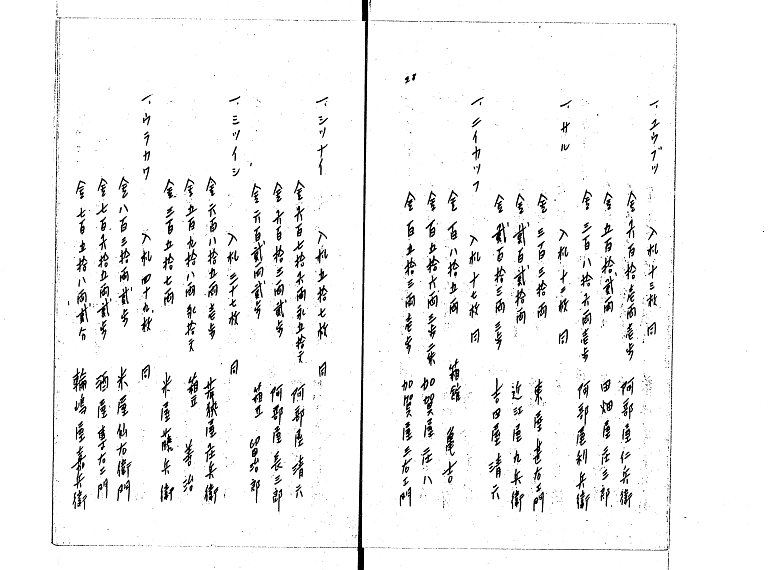 一、ユウブツ　入札十三枚　同
金六百拾壱両壱歩　阿部屋仁兵衛
金五百拾貳両　田畑屋庄三郎
金三百八拾六両壱歩　阿部屋利兵衛
一、サル　入札十三枚　同
金三百三拾両　東屋甚右ヱ門
金貳百貳拾両　近江屋九兵衛
金貳百拾三両三歩　吉田屋清六
一、ニイカツフ　入札十七枚　同
金百八拾五両　箱館　亀吉
金百五拾六両三歩二朱　加賀屋庄八
金百五拾三両壱歩　加賀屋三右ヱ門
28
一、シツナイ　入札五拾七枚　同
金六百七拾六両永五拾文　阿部屋清六
金六百拾三両貳歩　阿部屋長三郎
金六百貳両貳歩　箱立　留治郎
一、ミツイシ　入札三十七枚　同
金六百八拾五両壱歩　若狭屋庄兵衛
金五百九拾八両永拾文　箱立　善治
金三百五拾七両　米屋藤兵衛
一、ウラカワ　入札四十九枚　同
金八百三拾両貳歩　米屋仙右衛門
金七百六拾五両貳歩　酒屋重右ヱ門
金七百五拾八両貳分　輪嶋屋嘉兵衛